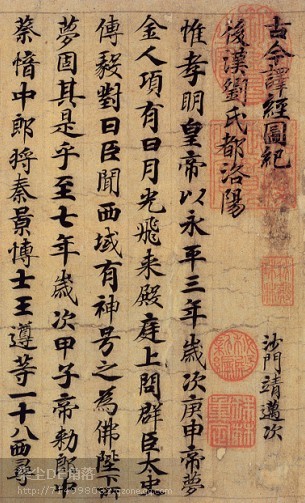 古今譯經圖紀
沙門靖邁次
後漢劉氏都洛陽
惟孝明皇帝以永平三年歲次庚申帝夢
金人項有日月光飛来殿庭上問群臣太史
傅毅對曰臣聞西域有神号之為佛陛下
夢固其是乎至七年歲次甲子帝勅郎中
蔡愔中郎将秦景博士王遵等一十八西尋